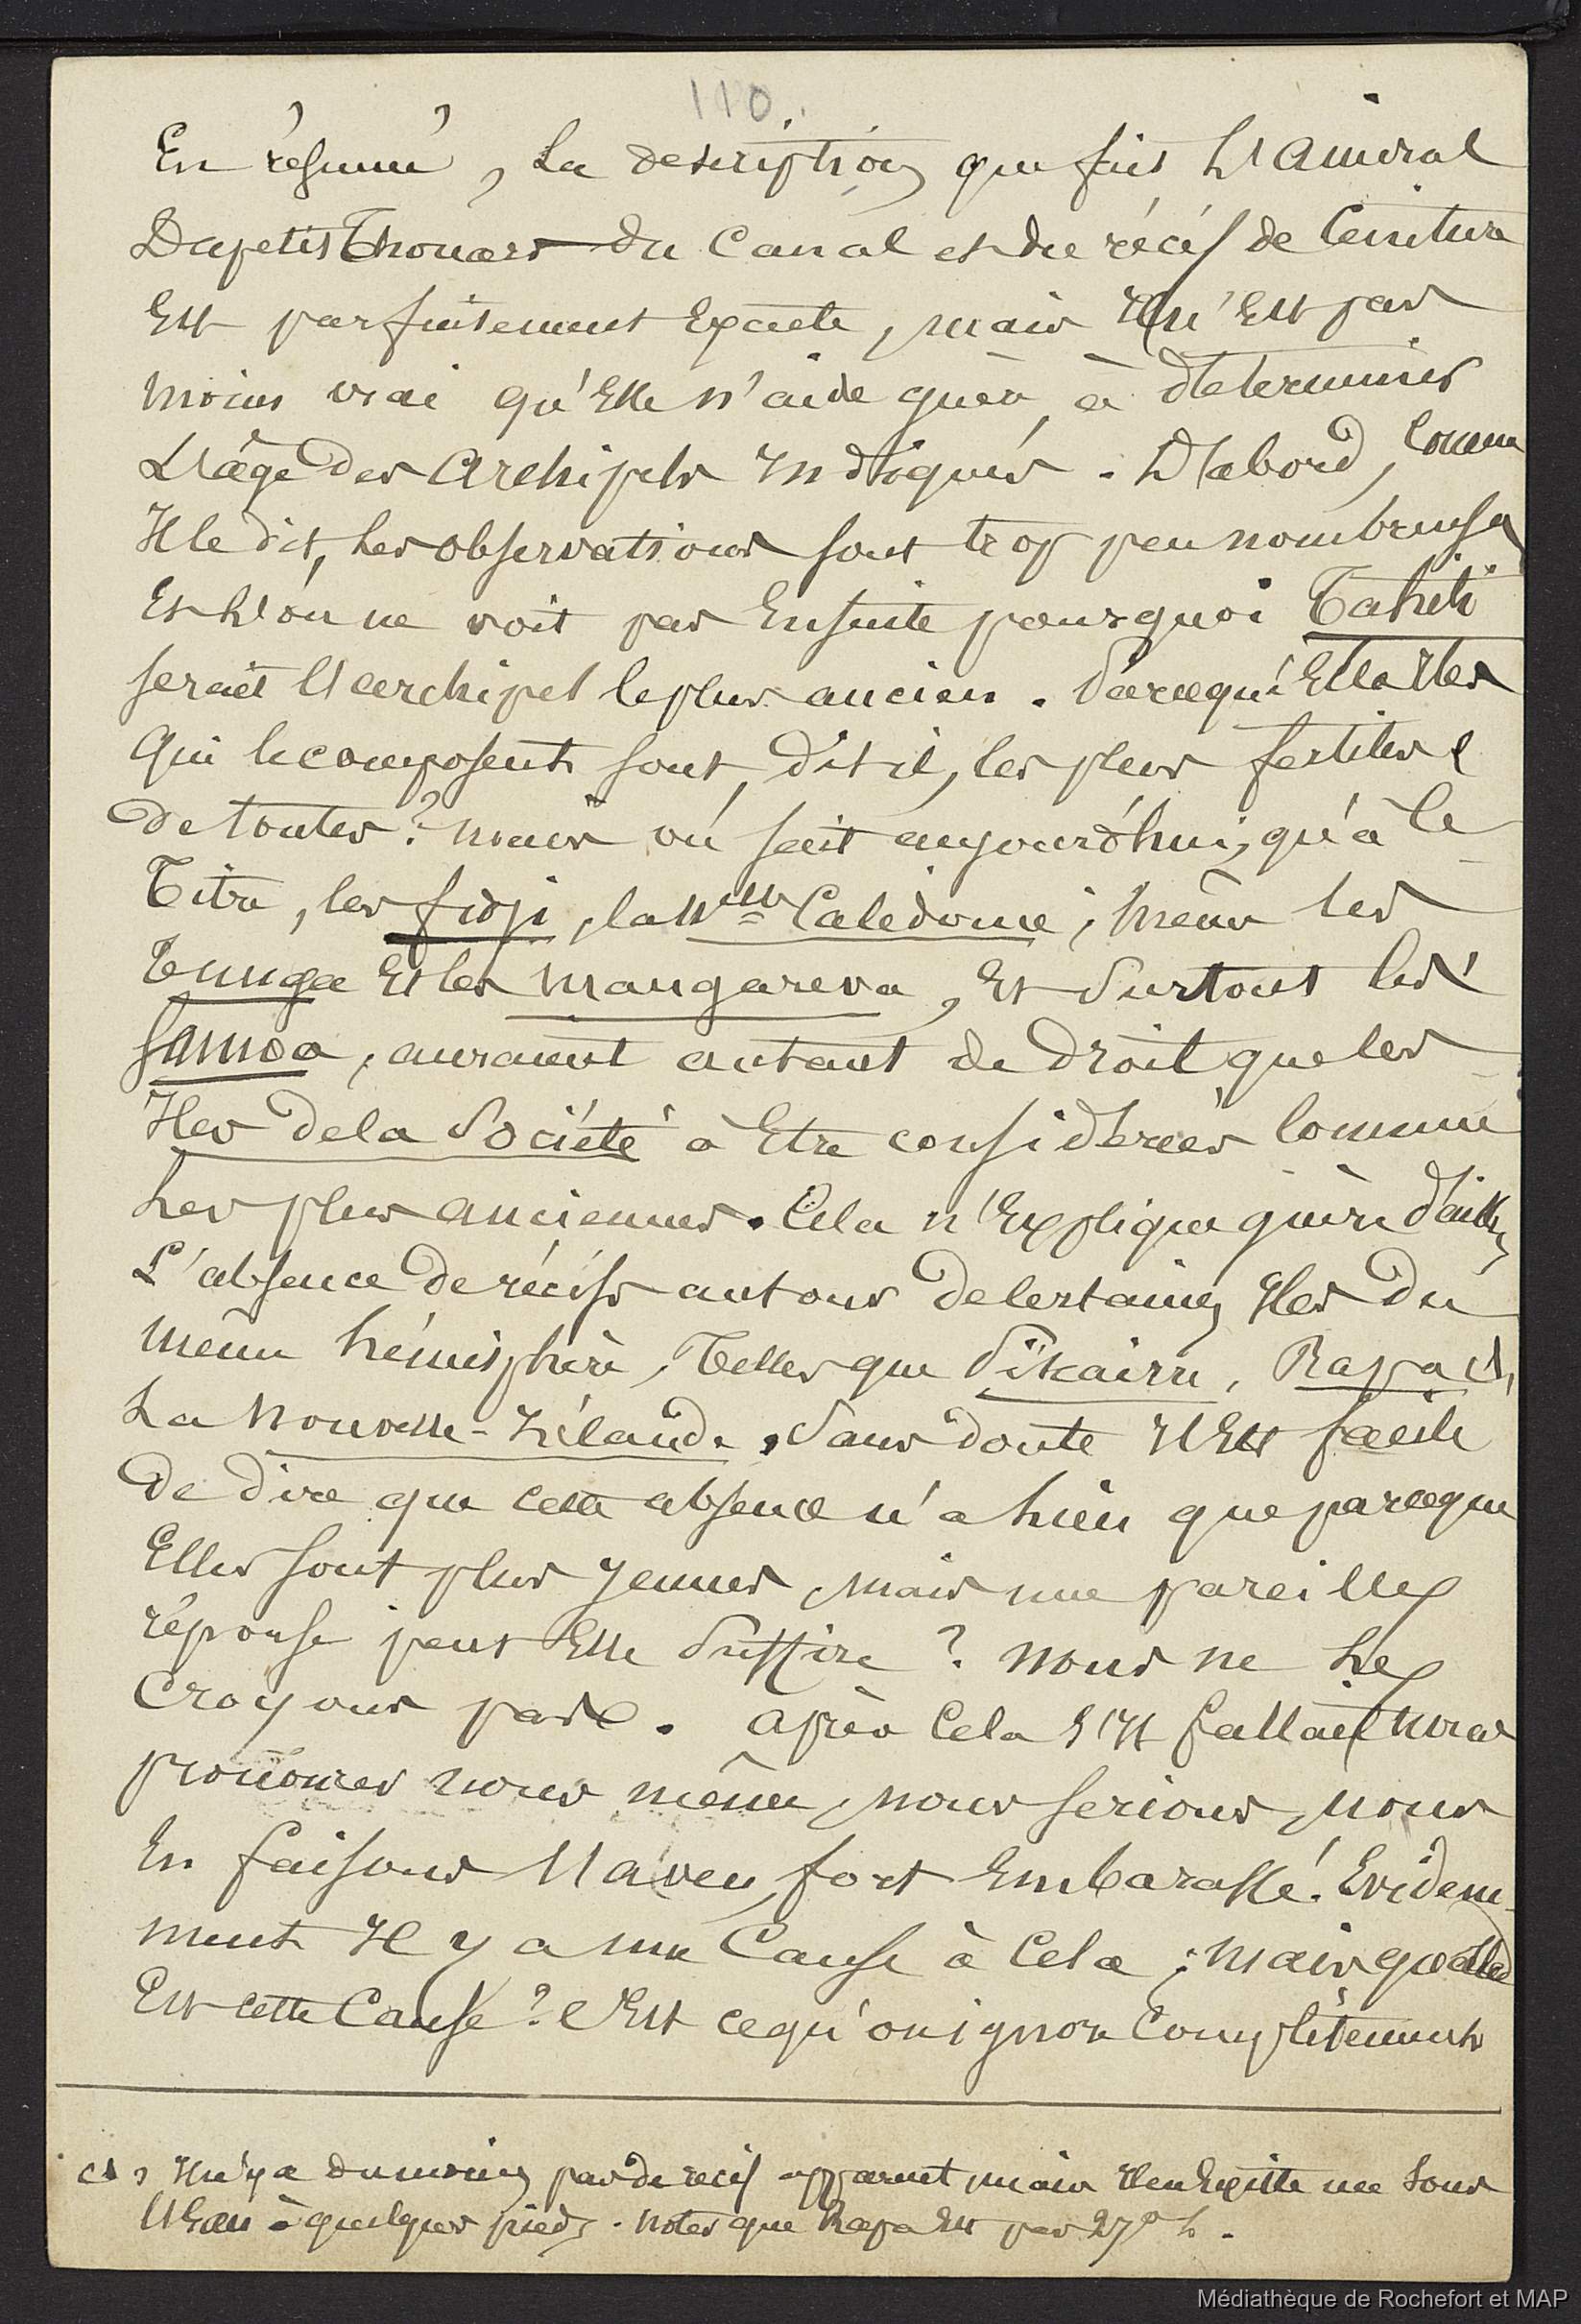 110.
En résumé, la description que fait l'amiral
Dupetit Thouars du Canal et du récif de Ceinture
Est parfaitement Exacte, mais Il n'Est pas
moins vrai qu'Elle n'aide guère à déterminer
L'âge des Archipels Indiqués. D'abord, Comme
Il le dit, les observations sont trop peu nombreuses
Et l'on ne voit pas Ensuite pourquoi Tahiti
serait l'archipel le plus ancien. Parcequ'Elle Iles
Qui le composent sont, dit il, les plus fertiles
de toutes? mais on sait aujourd'hui, qu'à Ce
Titre, les fidji, la Nlle Calédonie, même les
Tunga Et les mangareva, Et surtout les
Samoa, auraient autant de droit que les
Iles de la Société à Etre considérées Comme
Les plus anciennes. Cela n'Explique guère d'aill.
L'absence de récifs autour de Certaines Iles du
même hémisphère, Telles que Pitcairn, Rapa (1),
La Nouvelle-Zélande. Sans doute Il Est facile
De dire que cette absence n'a lieu que parceque
Elles sont plus Jeunes, mais une pareille
réponse peut Elle Suffire? nous ne le
Croyons pas. Après Cela S'Il fallait nous
prononcer nous même, nous serions, nous
En faisons l'aveu, fort Embarassé. Evidem-
ment Il y a une Cause à Cela; mais quelle
Est cette Cause? C'Est ce qu'on ignore Complètement
(1) Il n'y a du moins pas de récif apparent, mais Il en Existe un Sous
l'Eau à quelques pieds. Notez que Rapa Est par 27° L.
Médiathèque de Rochefort et MAP